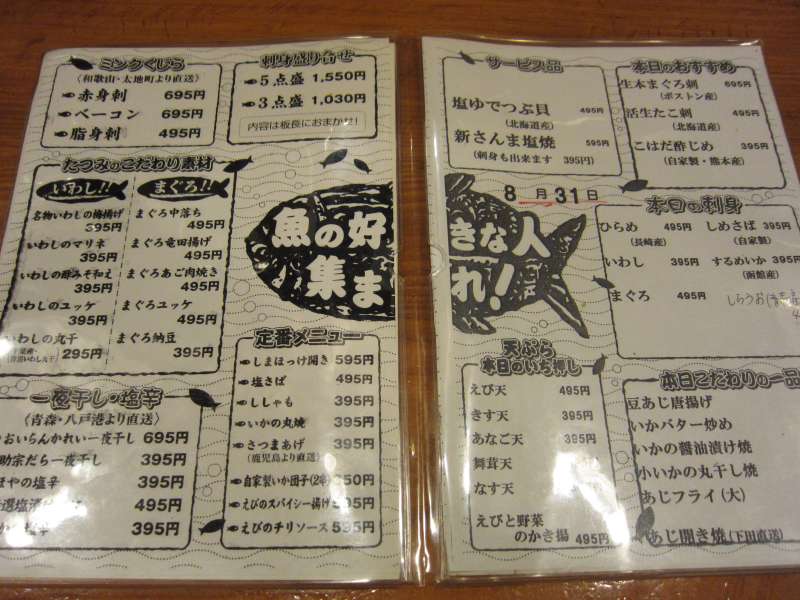 ミンクくじら
(和歌山・太地町より直送)
赤身刺 695円
ベーコン 695円
脂身刺 495円
刺身盛り合せ
5点盛 1,550円
3点盛 1,030円
内容は板長におまかせ!
たつみのこだわり素材
いわし!!
名物いわしの梅揚げ
395円
いわしのマリネ
395円
いわしの酢みそ和え
395円
いわしのユッケ
395円
いわしの丸干
295円
まぐろ!!
まぐろ中落ち
495円
まぐろ竜田揚げ
395円
まぐろあご肉焼き
495円
まぐろユッケ
495円
まぐろ納豆
395円
魚の好きな人
集まれ!
一夜干し・塩辛
(青森・八戸港より直送)
おいらんかれい一夜干し 695円
助宗だら一夜干し 395円
ほやの塩辛 395円
495円
塩辛 395円
定番メニュー
しまほっけ開き 595円
塩さば 495円
ししゃも 395円
いかの丸焼 395円
さつまあげ 395円
(鹿児島より直送)
自家製いか団子(2串) 50円
えびのスパイシー揚げ 395円
えびのチリソース 595円
サービス品
塩ゆでつぶ貝 495円
(北海道産)
新さんま塩焼 595円
(刺身も出来ます 395円)
本日のおすすめ
生本まぐろ刺 695円
(ボストン産)
活生たこ刺 495円
(北海道産)
こはだ酢じめ 395円
(自家製・熊本産)
8月31日
本日の刺身
ひらめ 495円
(長崎産)
いわし 395円
まぐろ 495円
しめさば 395円
(自家製)
するめいか 395円
(函館産)
しらうお
天ぷら
本日のいち押し
えび天 495円
きす天 395円
あなご天 395円
舞茸天 395円
なす天 395円
えびと野菜
のかき揚 495円
本日こだわりの一品
豆あじ唐揚げ
いかバター炒め
いかの醤油漬け焼
小いかの丸干し焼
あじフライ(大)
あじ開き焼(下田直送)